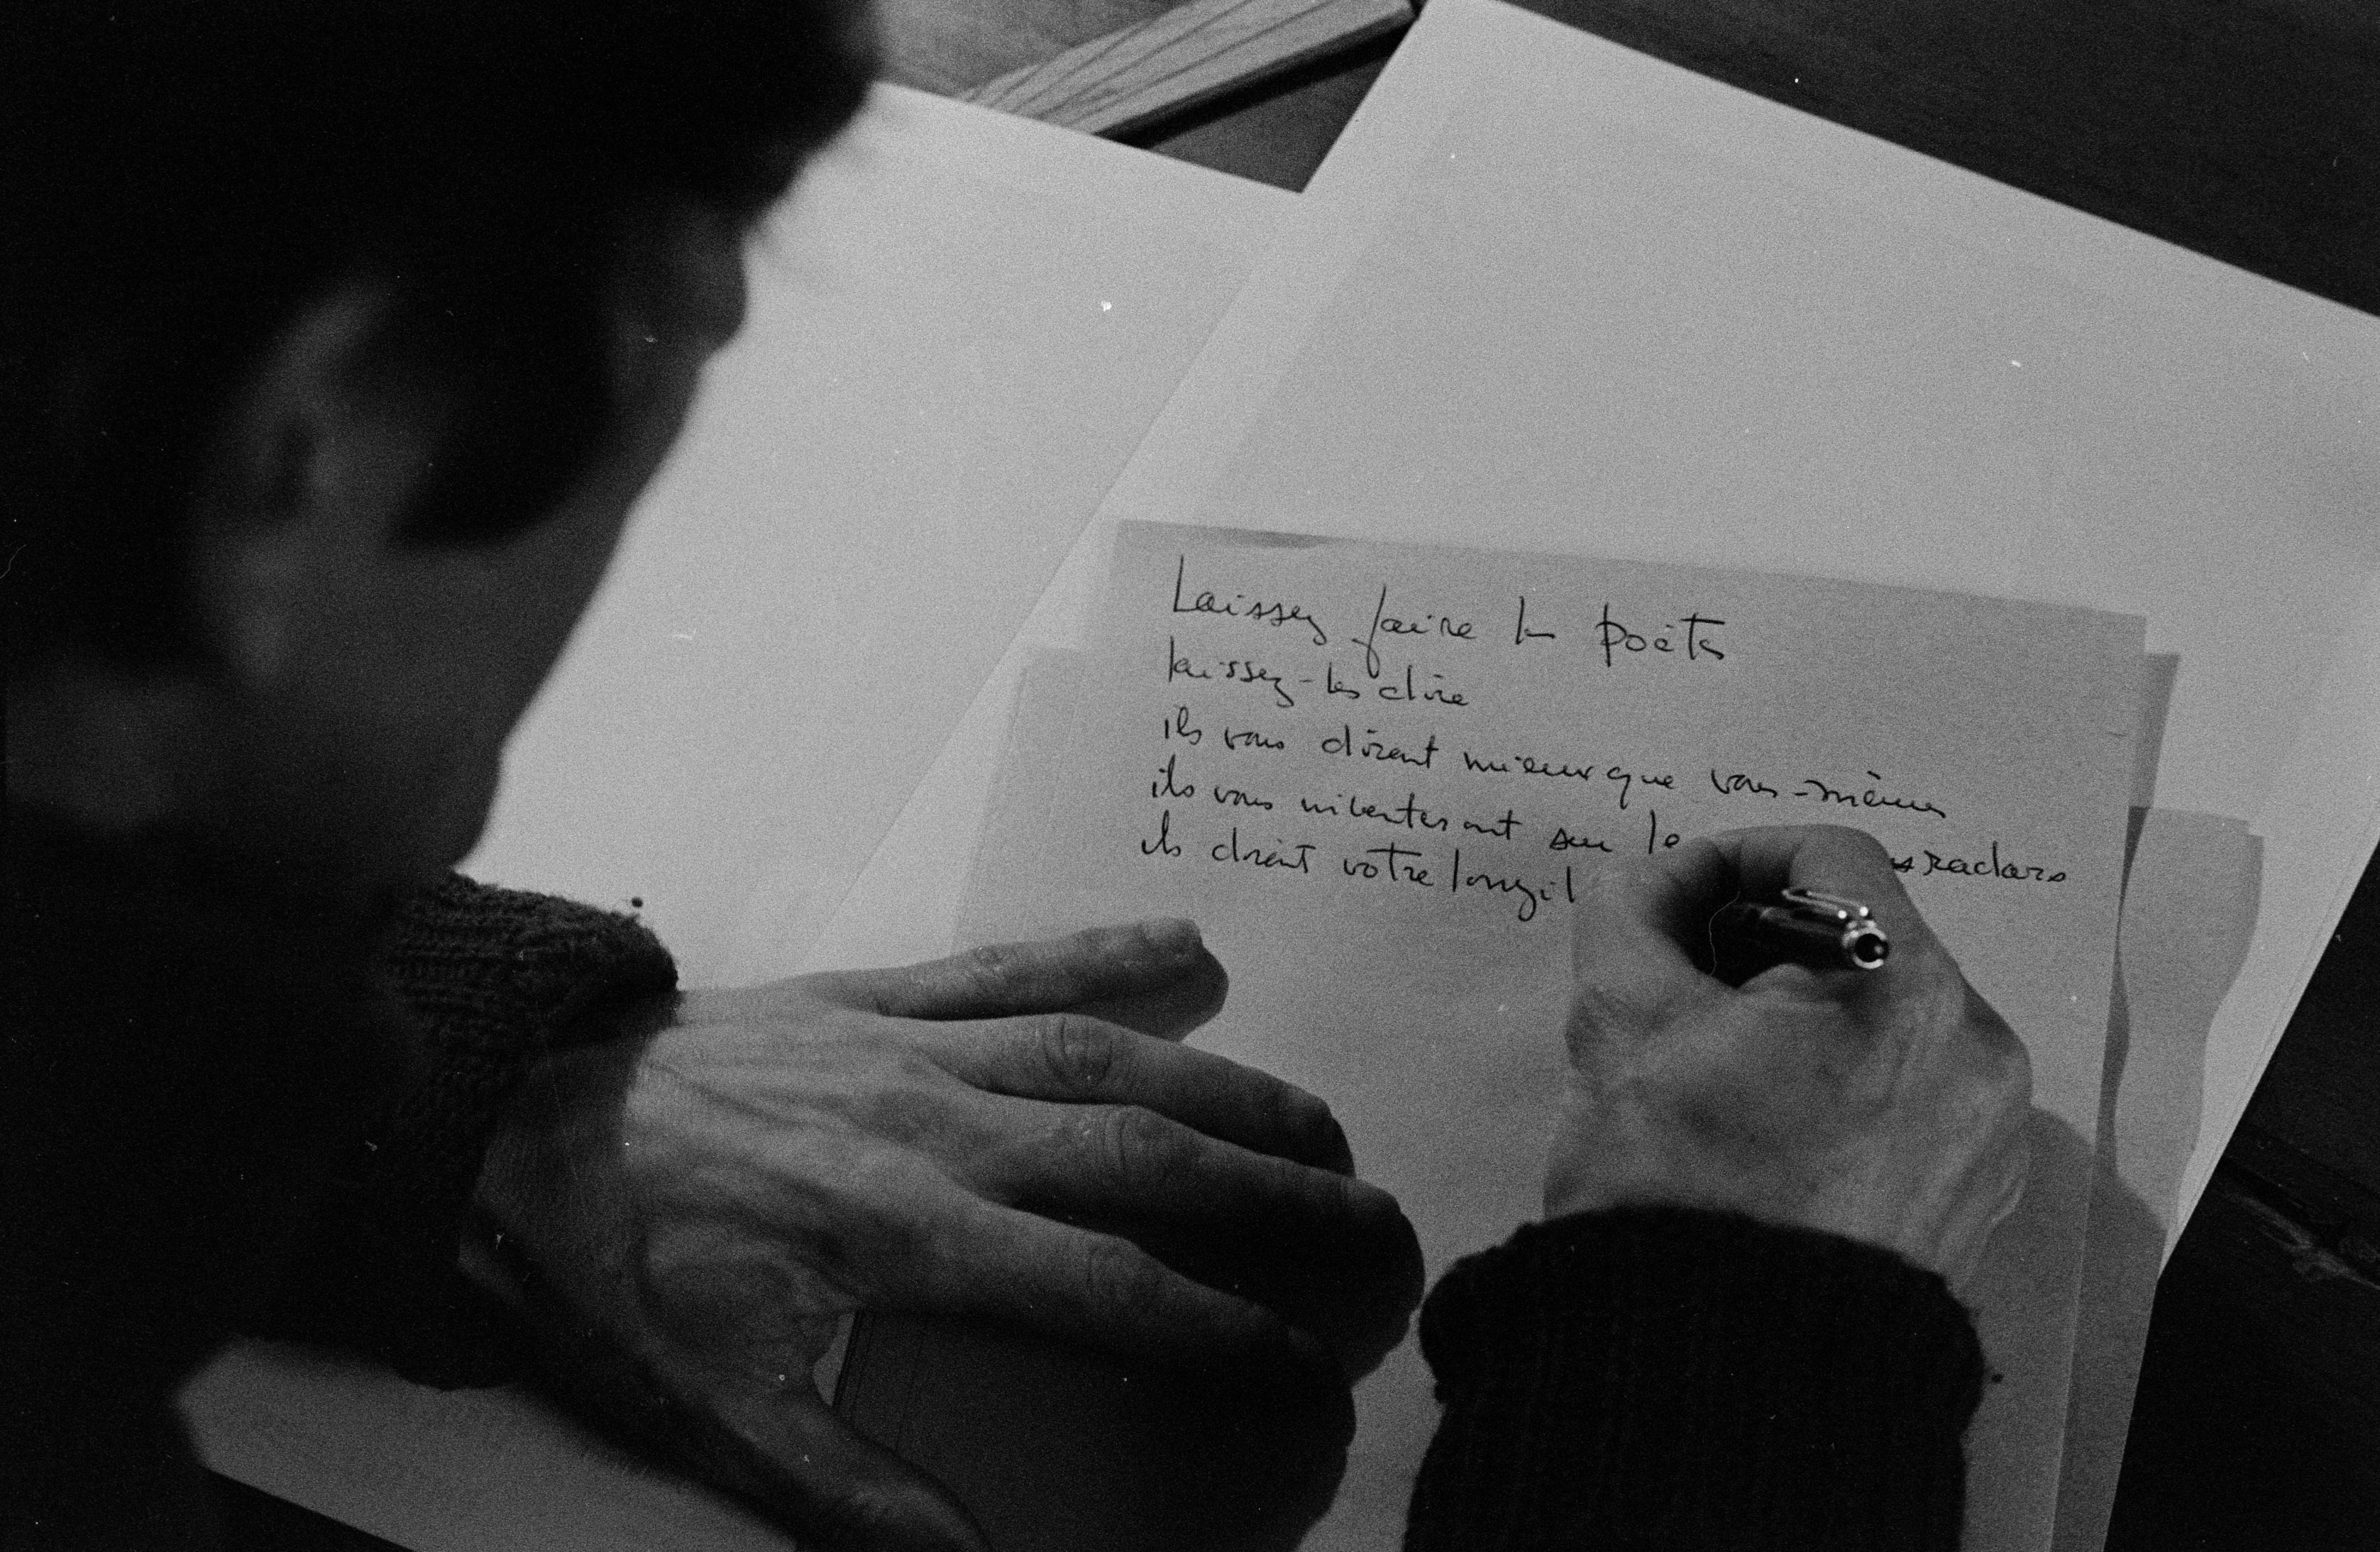 Laissez faire les poètes
laissez-les dire
ils vous diront mieux que vous-mêmes
ils vous inventeront sur le radars
ils diront votre